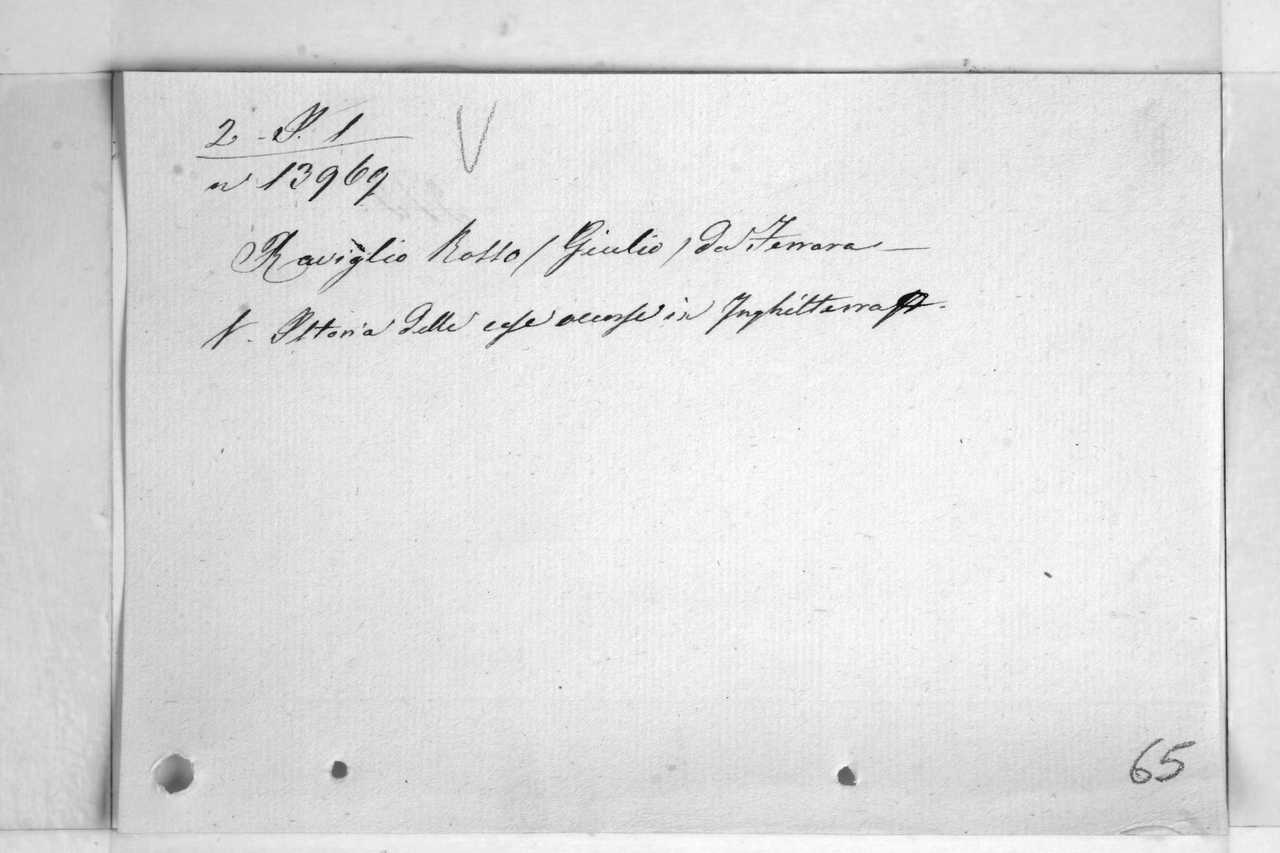 2 - P. 1
V
n 13969
Raviglio Rosso (Giulio) da Ferrara -
V. Istoria delle cose occorse in Inghilterra
65